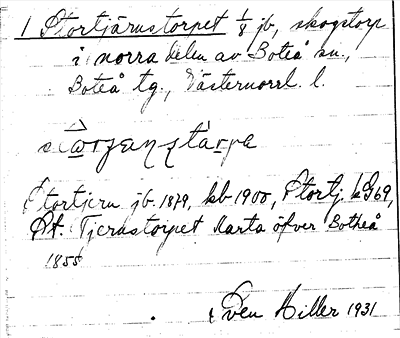 1 Stortjärnstorpet 1/8 jb, skogstorp
i norra delen av Boteå sn.,
Boteå tg., Västernorrl. l.
Stortjern jb. 1879, kb 1900, Stortj. kG 69,
St. Tjernstorpet Karta öfver Botheå
1855
Sven Hiller 1931